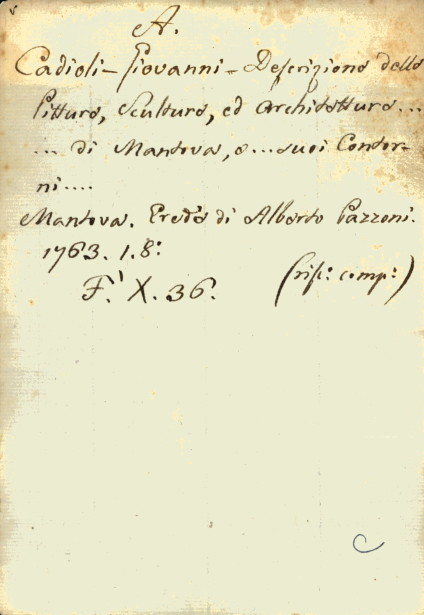 A.
Cadioli - Giovanni - Descrizione delle
Pitture, Sculture, ed Architetture...
... di Mantova, e... suoi Contor-
ni....
Mantova. Erede di Alberto Pazzoni.
1763. 1. 8:
F. X. 36. (rist: comp:)
C